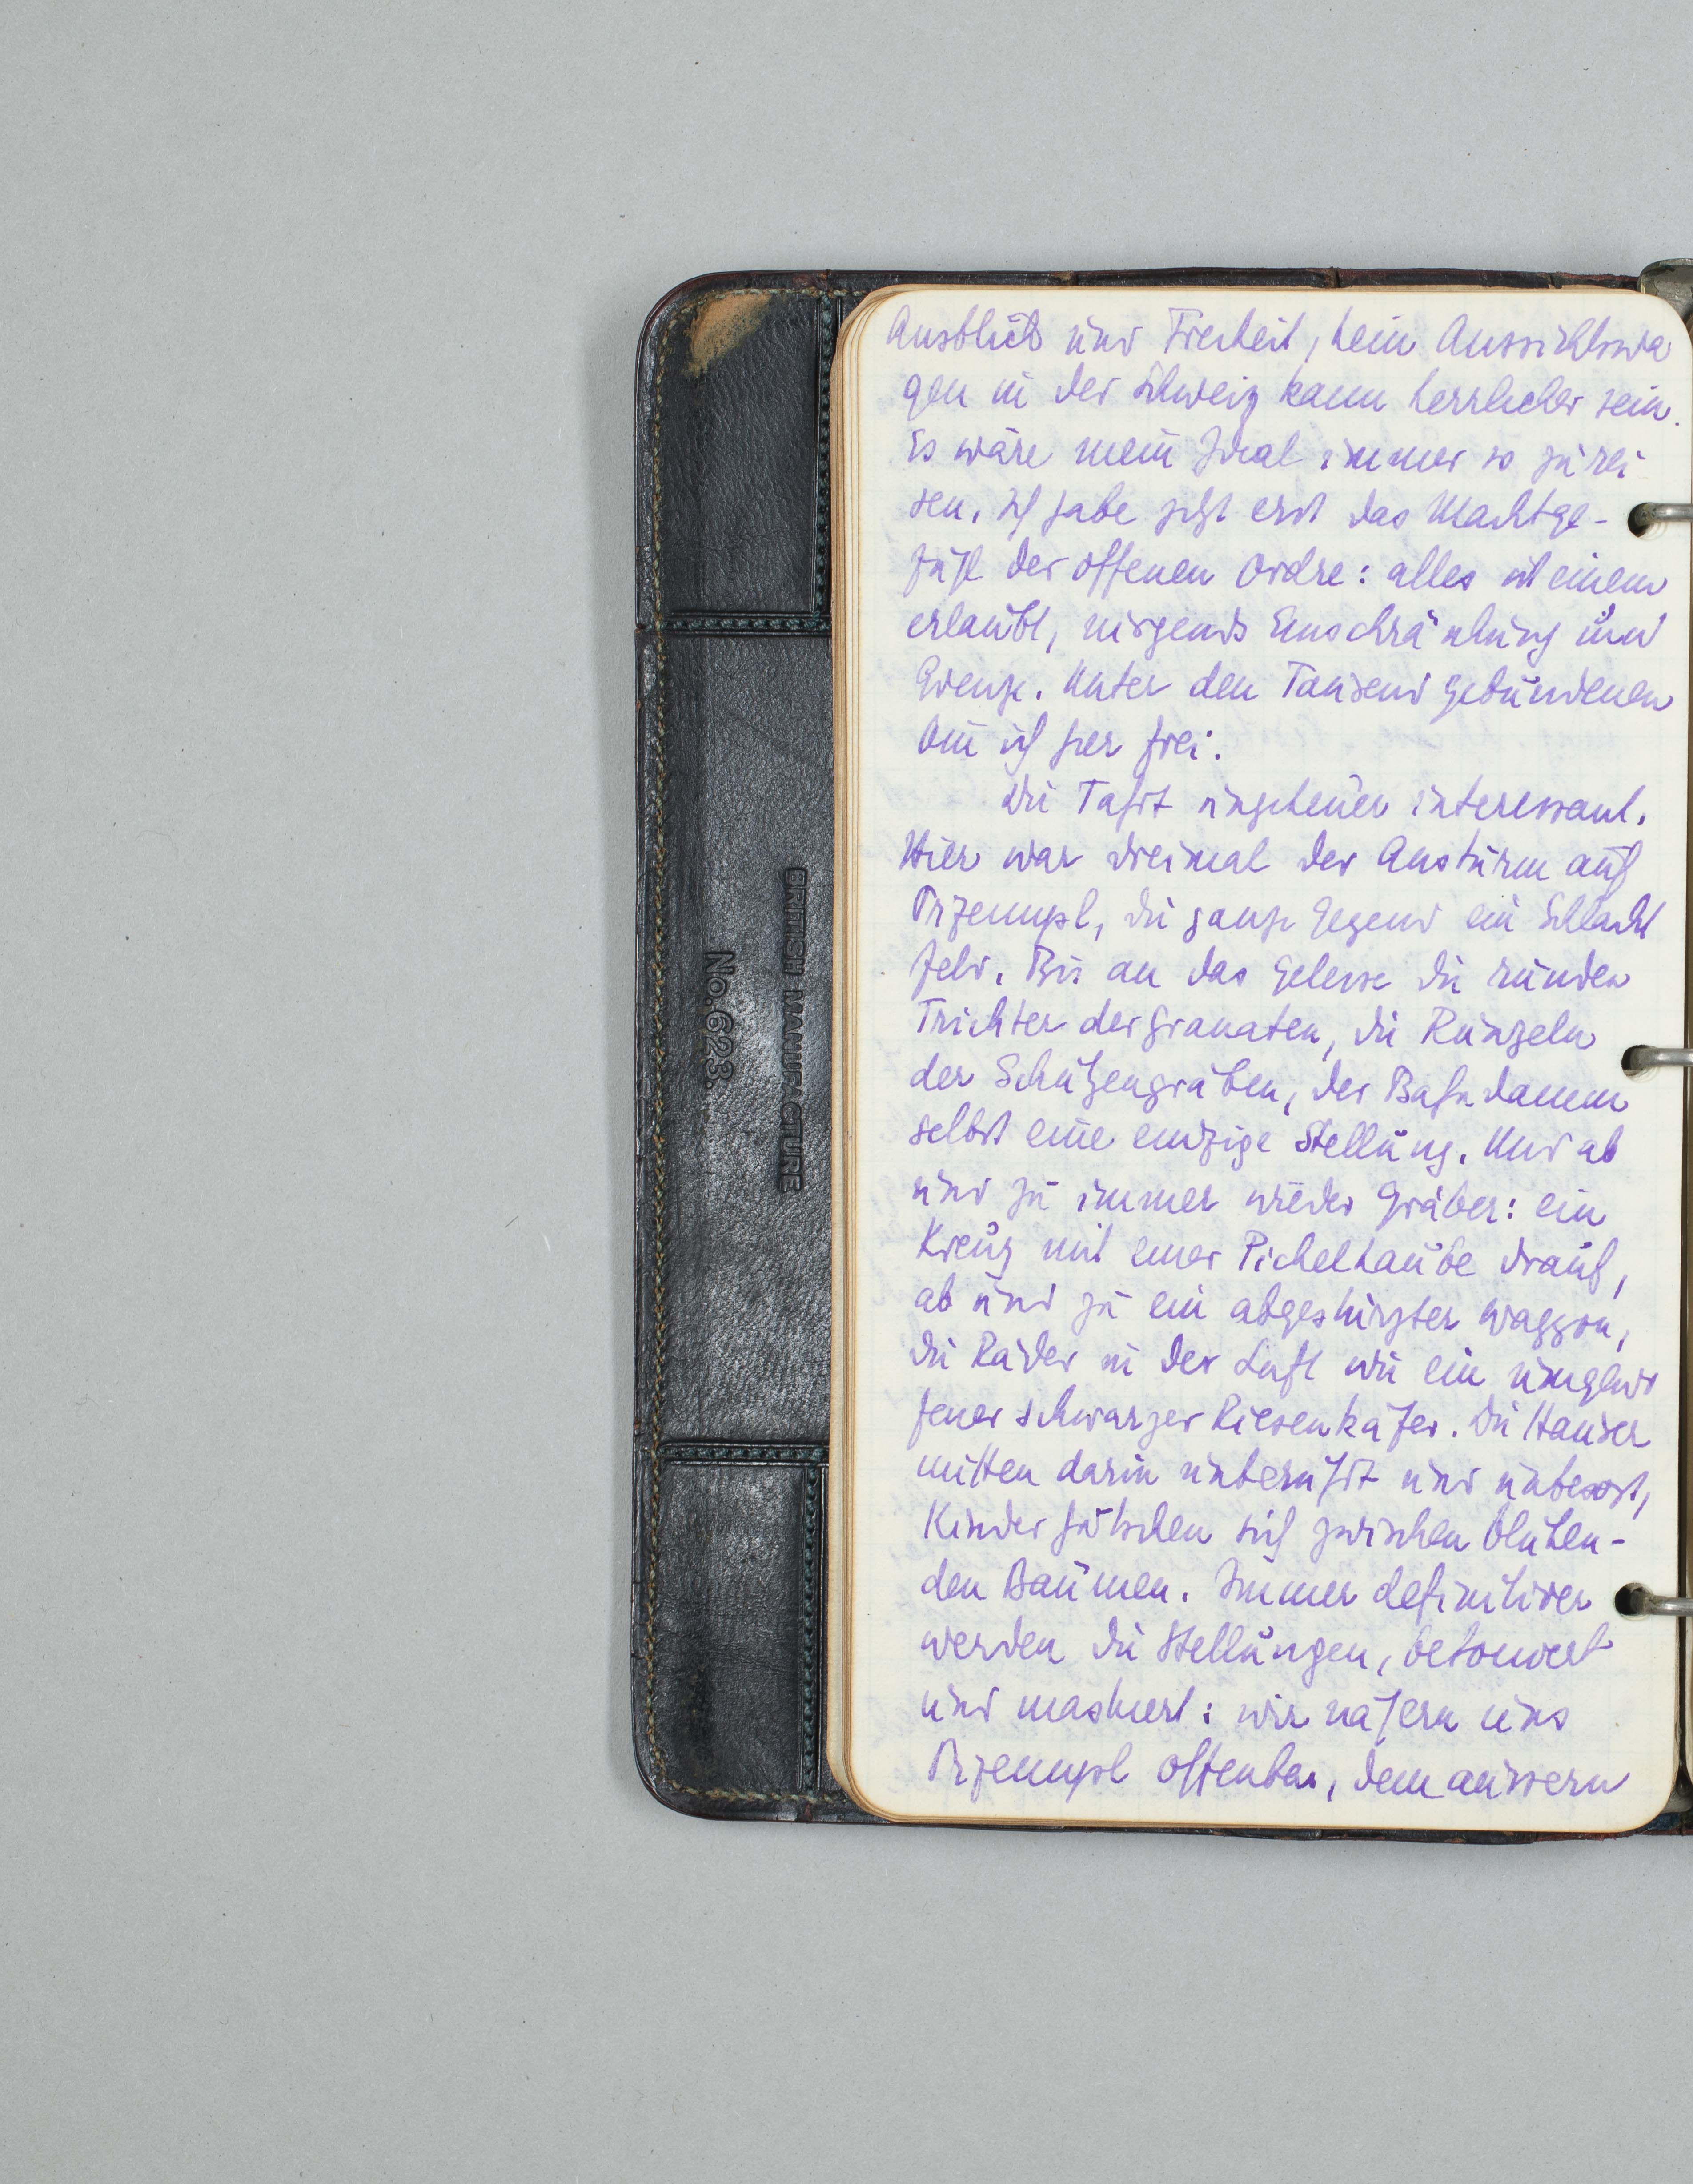 Ausblick und Freiheit, kein Aussichtswa
gen in der Schweiz kann herrlicher sein.
Es wäre mein Ideal immer so zu rei
sen. Ich habe jetzt erst das Machtge-
fühl der offenen Ordre: alles ist einem
erlaubt, nirgends Einschränkung und
Grenze. Unter den Tausend Gebundenen
bin ich hier frei.
Die Fahrt ungeheuer interessant.
Hier war dreimal der Ansturm auf
Przemysl, die ganze Gegend ein Schlacht
feld. Bis an das Geleise die runden
Trichter der Granaten, die Runzeln
der Schützengräben, der Bahndamm
selbst eine einzige Stellung. Und ab
und zu immer wieder Gräber: ein
Kreuz mit einer Pickelhaube drauf,
ab und zu ein abgestürzter Waggon,
die Räder in der Luft wie ein umgewor
fener schwarzer Riesenkäfer. Die Häuser
mitten darin unberührt und unbesorgt,
Kinder hutschen sich zwischen blühen-
den Bäumen. Immer definitiver
werden die Stellungen, betoniert
und maskiert: wir nähern uns
Przemysl offenbar, dem äussern
BRITISH MANUFACTURE
No. 623.